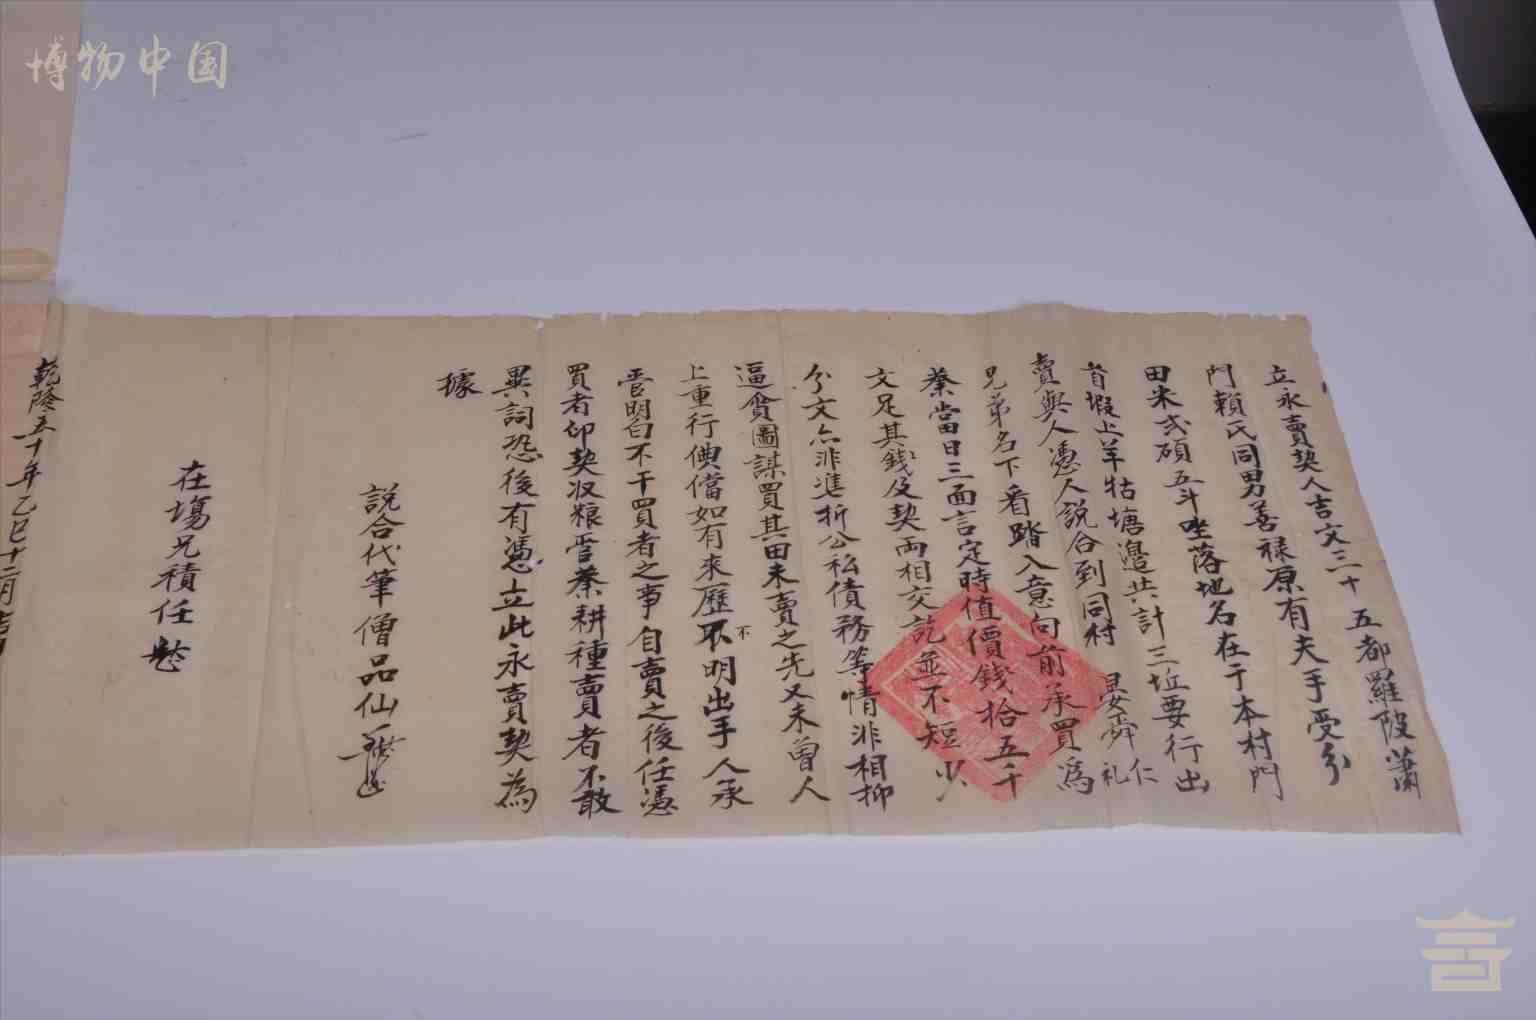 博物中国
立永賣契人吉文三十五都羅陂蕭
門賴氏同男善祿原有夫手受分
田米弍碩五斗坐落地名在于本村門
首塅上羊牯塘邉共計三坵要行出
賣與人憑人說合到同村晏舜仁礼
兄弟名下看踏入意向前承買為
業當日三面言定時值價錢拾五千
文足其錢及契両相交訖並不短少
分文亦非準折公私債務等情非相抑
逼貧圖謀買其田未賣之先又未曾人
上重行典儅如有來歷不明出手人承
管明白不干買者之事自賣之後任憑
買者卬契収粮管業耕種賣者不敢
異詞恐後有憑立此永賣契為
據
說合代筆僧品仙
在塲兄積任
乾隆五十年乙巳十二月